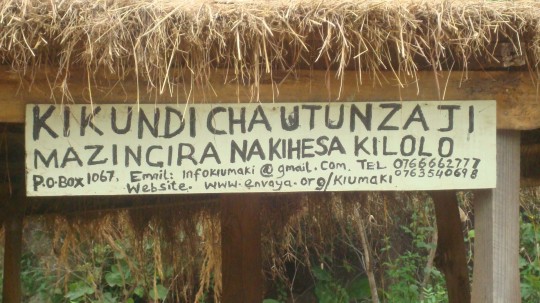 KIKUNDI CHA UTUNZAJI
MAZINGIRA NA KIHESA KILOLO
P.O.BOX 1067, EMAIL: INFOKIUMAKI@GMAIL.COM, TEL 0766662777
WEBSITE. WWW.ENVAYA.ORG/KIUMAKI 0763540698